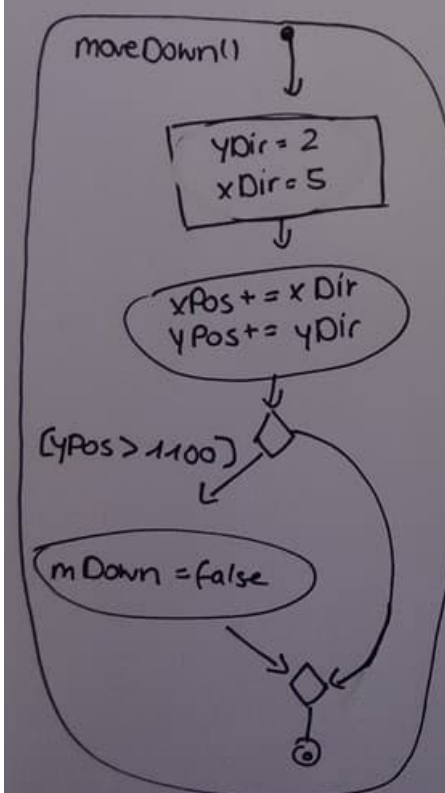 moveDown()
yDir = 2
xDir = 5
xPos += xDir
yPos += yDir
[yPos > 1100]
mDown = false